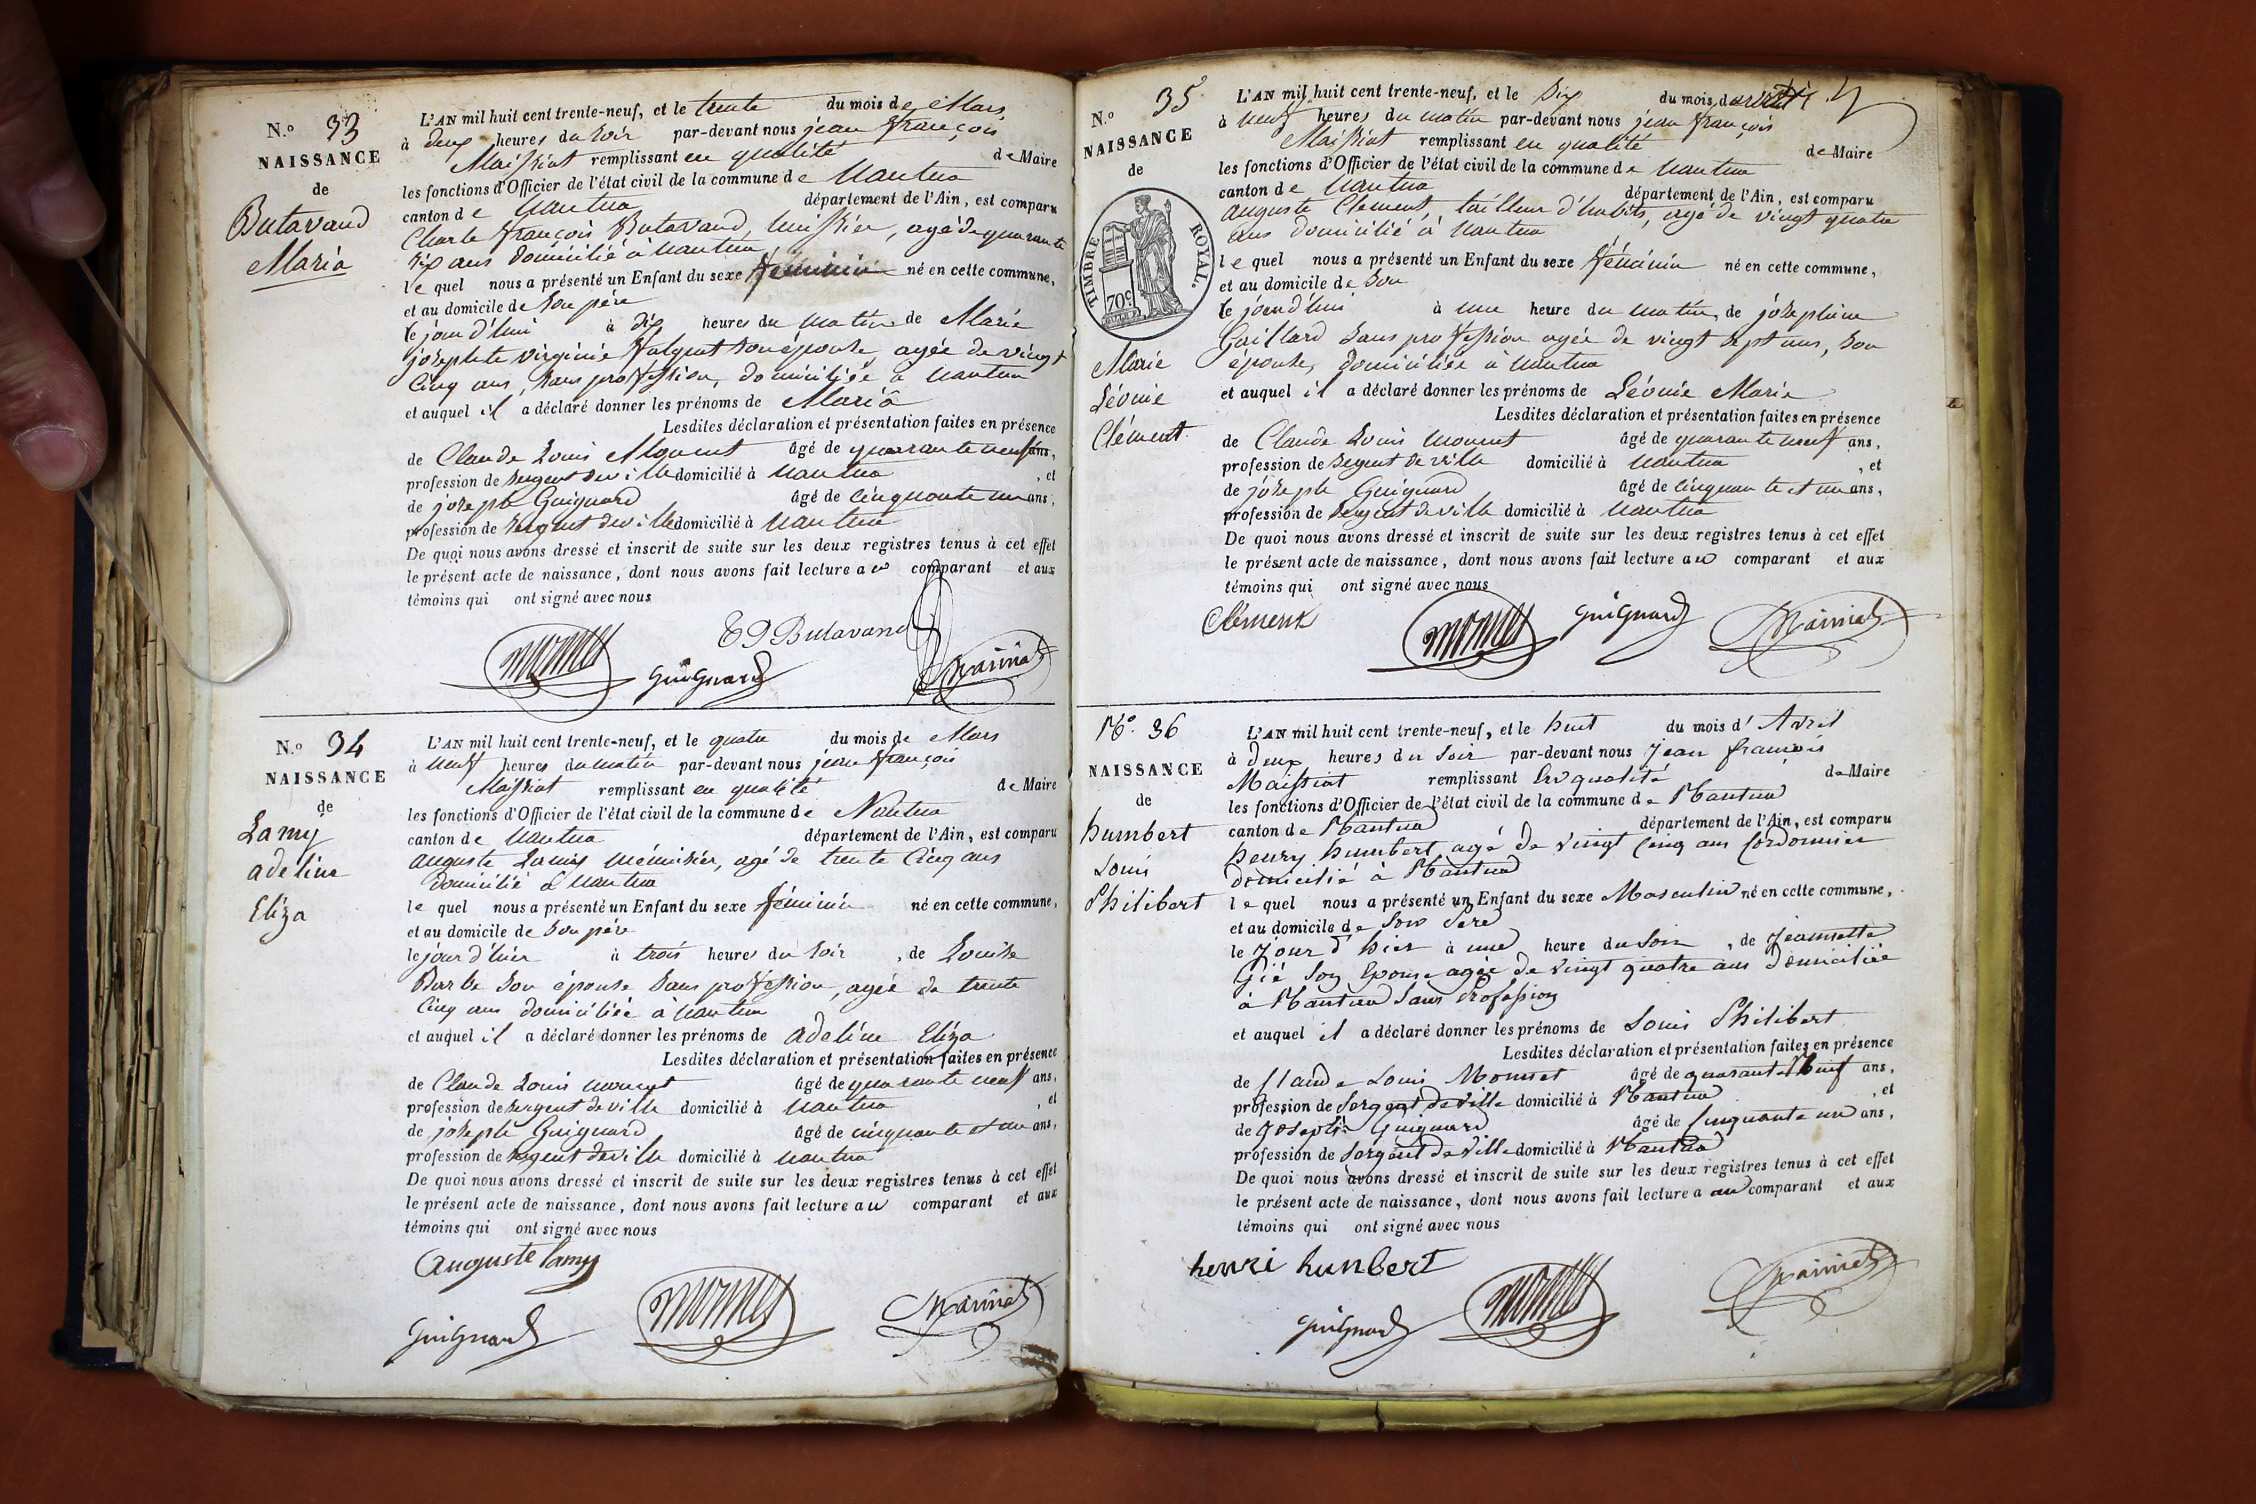 N.º 33
NAISSANCE
de
Butavand
Maria
L'AN mil huit cent trente-neuf, et le trente du mois de Mars
à deux heures du soir par-devant nous jean françois
Maissiat remplissant en qualité de Maire
les fonctions d'Officier de l'état civil de la commune de Nantua
canton de Nantua département de l'Ain, est comparu
Charle françois Butavand, huissier, agé de quarante
six ans domicilié à Nantua,
le quel nous a présenté un Enfant du sexe féminin né en cette commune,
et au domicile de son père
le jour d'hui à dix heures du matin de Marie
josephte virginie son épouse, agée de vingt
cinq ans, sans profession, domiciliée à Nantua
et auquel il a déclaré donner les prénoms de Maria
Lesdites déclaration et présentation faites en présence
de Claude Louis Monnet âgé de quarante neuf ans,
profession de sergent de ville domicilié à Nantua , et
de joseph Guignard âgé de cinquante un ans,
profession de sergent de ville domicilié à Nantua
De quoi nous avons dressé et inscrit de suite sur les deux registres tenus à cet effet
le présent acte de naissance, dont nous avons fait lecture au comparant et aux
témoins qui ont signé avec nous
Butavand
Monnet Guignard Maissiat
N.º 34
NAISSANCE
de
Lamy
adeline
Eliza
L'AN mil huit cent trente-neuf, et le quatre du mois de Mars
à neuf heures du matin par-devant nous jean françois
Maissiat remplissant en qualité de Maire
les fonctions d'Officier de l'état civil de la commune de Nantua
canton de Nantua département de l'Ain, est comparu
auguste Lamy menuisier, agé de trente cinq ans
domicilié à Nantua
le quel nous a présenté un Enfant du sexe féminin né en cette commune,
et au domicile de son père
le jour d'hier à trois heures du soir , de Louise
Barbe son épouse sans profession, agée de trente
cinq ans domiciliée à Nantua
et auquel il a déclaré donner les prénoms de adeline Eliza
Lesdites déclaration et présentation faites en présence
de Claude Louis monnet âgé de quarante neuf ans,
profession de sergent de ville domicilié à Nantua , et
de joseph Guignard âgé de cinquante et un ans,
profession de sergent de ville domicilié à Nantua
De quoi nous avons dressé et inscrit de suite sur les deux registres tenus à cet effet
le présent acte de naissance, dont nous avons fait lecture au comparant et aux
témoins qui ont signé avec nous
auguste lamy
Guignard Monnet Maissiat
N.º 35
NAISSANCE
de
TIMBRE ROYAL.
70c
Marie
Léonie
Clément
L'AN mil huit cent trente-neuf, et le Six du mois d'avril
à neuf heures du matin par-devant nous jean françois
Maissiat remplissant en qualité de Maire
les fonctions d'Officier de l'état civil de la commune de Nantua
canton de Nantua département de l'Ain, est comparu
auguste Clement, tailleur d'habits, agé de vingt quatre
ans domicilié à Nantua
le quel nous a présenté un Enfant du sexe féminin né en cette commune,
et au domicile de son
le jourd'hui à une heure du matin, de joséphine
Gaillard sans profession agée de vingt sept ans, son
épouse, domiciliée à Nantua
et auquel il a déclaré donner les prénoms de Léonie Marie
Lesdites déclaration et présentation faites en présence
de Claude Louis monnet âgé de quarante neuf ans,
profession de sergent de ville domicilié à Nantua , et
de joseph Guignard âgé de cinquante et un ans,
profession de sergent de ville domicilié à Nantua
De quoi nous avons dressé et inscrit de suite sur les deux registres tenus à cet effet
le présent acte de naissance, dont nous avons fait lecture au comparant et aux
témoins qui ont signé avec nous
Clément Monnet Guignard Maissiat
Nº. 36
NAISSANCE
de
humbert
Louis
Philibert
L'AN mil huit cent trente-neuf, et le huit du mois d' Avril
à deux heures du soir par-devant nous Jean françois
Maissiat remplissant en qualité de Maire
les fonctions d'Officier de l'état civil de la commune de Nantua
canton de Nantua département de l'Ain, est comparu
henry humbert, agé de vingt cinq ans Cordonnier
domicilié à Nantua
le quel nous a présenté un Enfant du sexe Masculin né en cette commune,
et au domicile de son Père
le jour d'hier à une heure du soir , de Jeannette
Gié son Epouse agée de vingt quatre ans domiciliée
à Nantua sans Profession
et auquel il a déclaré donner les prénoms de Louis Philibert
Lesdites déclaration et présentation faites en présence
de Claude Louis Monnet âgé de quarante Neuf ans,
profession de Sergent de Ville domicilié à Nantua , et
de Joseph Guignard âgé de Cinquante un ans,
profession de Sergent de Ville domicilié à Nantua
De quoi nous avons dressé et inscrit de suite sur les deux registres tenus à cet effet
le présent acte de naissance, dont nous avons fait lecture a au comparant et aux
témoins qui ont signé avec nous
henri hunbert
Guignard Monnet Maissiat